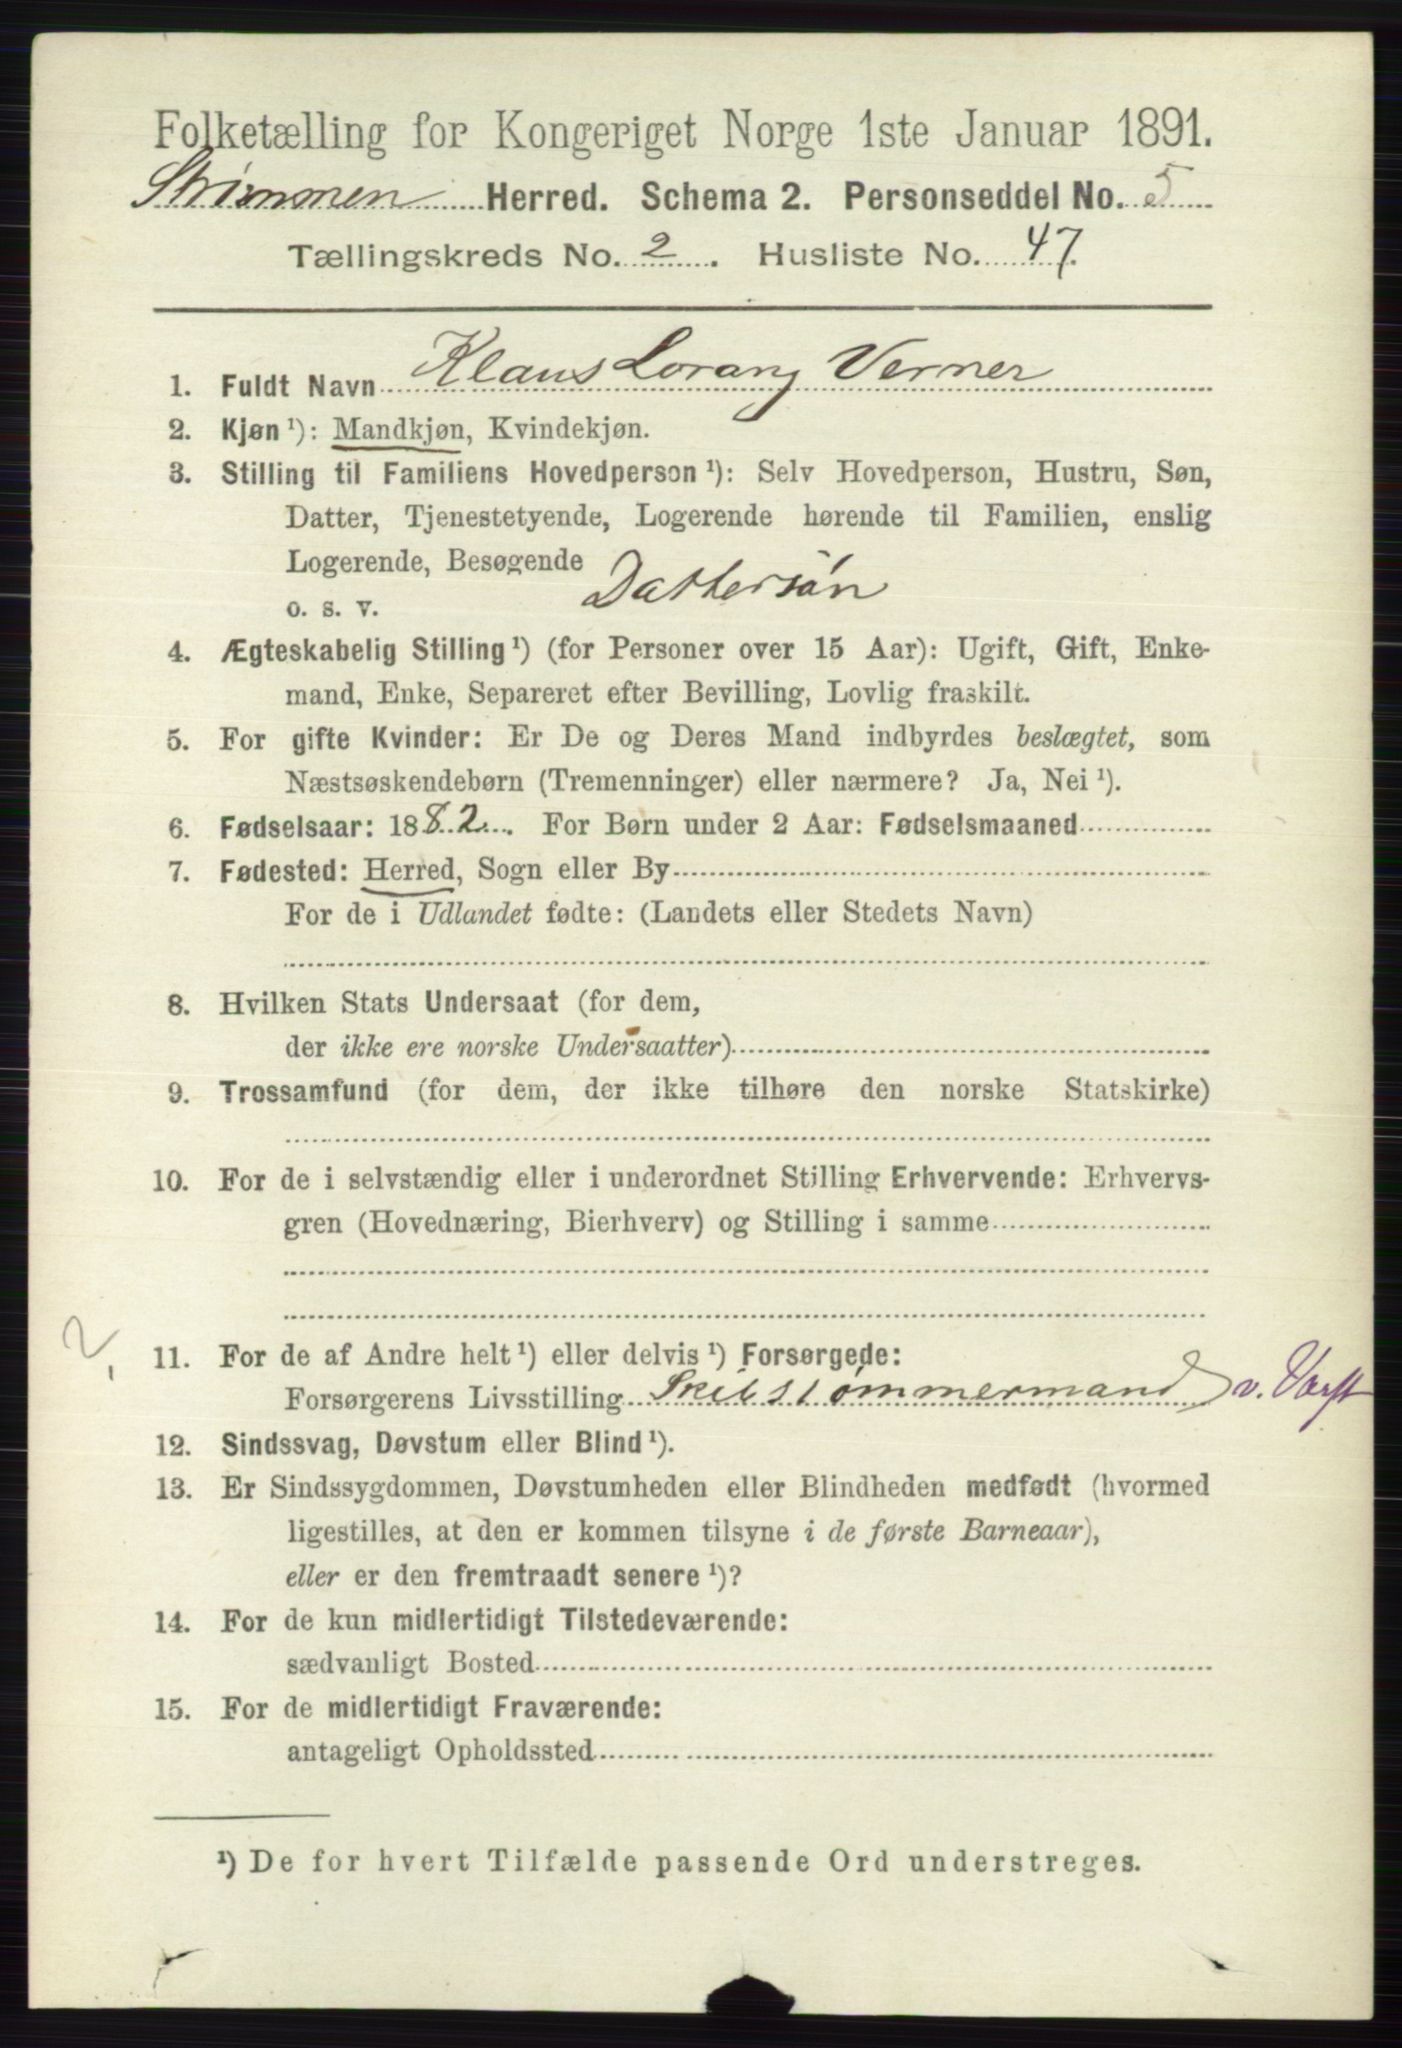 Folketælling for Kongeriget Norge 1ste Januar 1891.
Strømmen Herred. Schema 2. Personseddel No. 5
Tællingskreds No. 2. Husliste No. 47.
1. Fuldt Navn Klaus Lorang Verner
2. Kjøn ¹): Mandkjøn, Kvindekjøn.
3. Stilling til Familiens Hovedperson ¹): Selv Hovedperson, Hustru, Søn,
Datter, Tjenestetyende, Logerende hørende til Familien, enslig
Logerende, Besøgende
o. s. v. Dattersøn
4. Ægteskabelig Stilling ¹) (for Personer over 15 Aar): Ugift, Gift, Enke-
mand, Enke, Separeret efter Bevilling, Lovlig fraskilt.
5. For gifte Kvinder: Er De og Deres Mand indbyrdes beslægtet, som
Næstsøskendebørn (Tremenninger) eller nærmere? Ja, Nei ¹).
6. Fødselsaar: 1882. For Børn under 2 Aar: Fødselsmaaned
7. Fødested: Herred, Sogn eller By
For de i Udlandet fødte: (Landets eller Stedets Navn)
8. Hvilken Stats Undersaat (for dem,
der ikke ere norske Undersaatter)
9. Trossamfund (for dem, der ikke tilhøre den norske Statskirke)
10. For de i selvstændig eller i underordnet Stilling Erhvervende: Erhvervs-
gren (Hovednæring, Bierhverv) og Stilling i samme
2,
11. For de af Andre helt ¹) eller delvis ¹) Forsørgede:
Forsørgerens Livsstilling Skibstømmermand v. Værft
12. Sindssvag, Døvstum eller Blind ¹).
13. Er Sindssygdommen, Døvstumheden eller Blindheden medfødt (hvormed
ligestilles, at den er kommen tilsyne i de første Barneaar),
eller er den fremtraadt senere ¹)?
14. For de kun midlertidigt Tilstedeværende:
sædvanligt Bosted
15. For de midlertidigt Fraværende:
antageligt Opholdssted
¹) De for hvert Tilfælde passende Ord understreges.